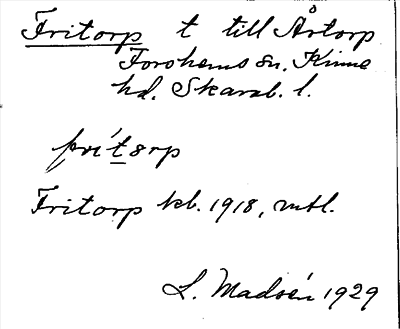 Fritorp t till Årtorp
Forshems sn. Kinne
hd. Skarab. l.
frít8rp
Fritorp kb. 1918, mtl.
L. Madsén 1929